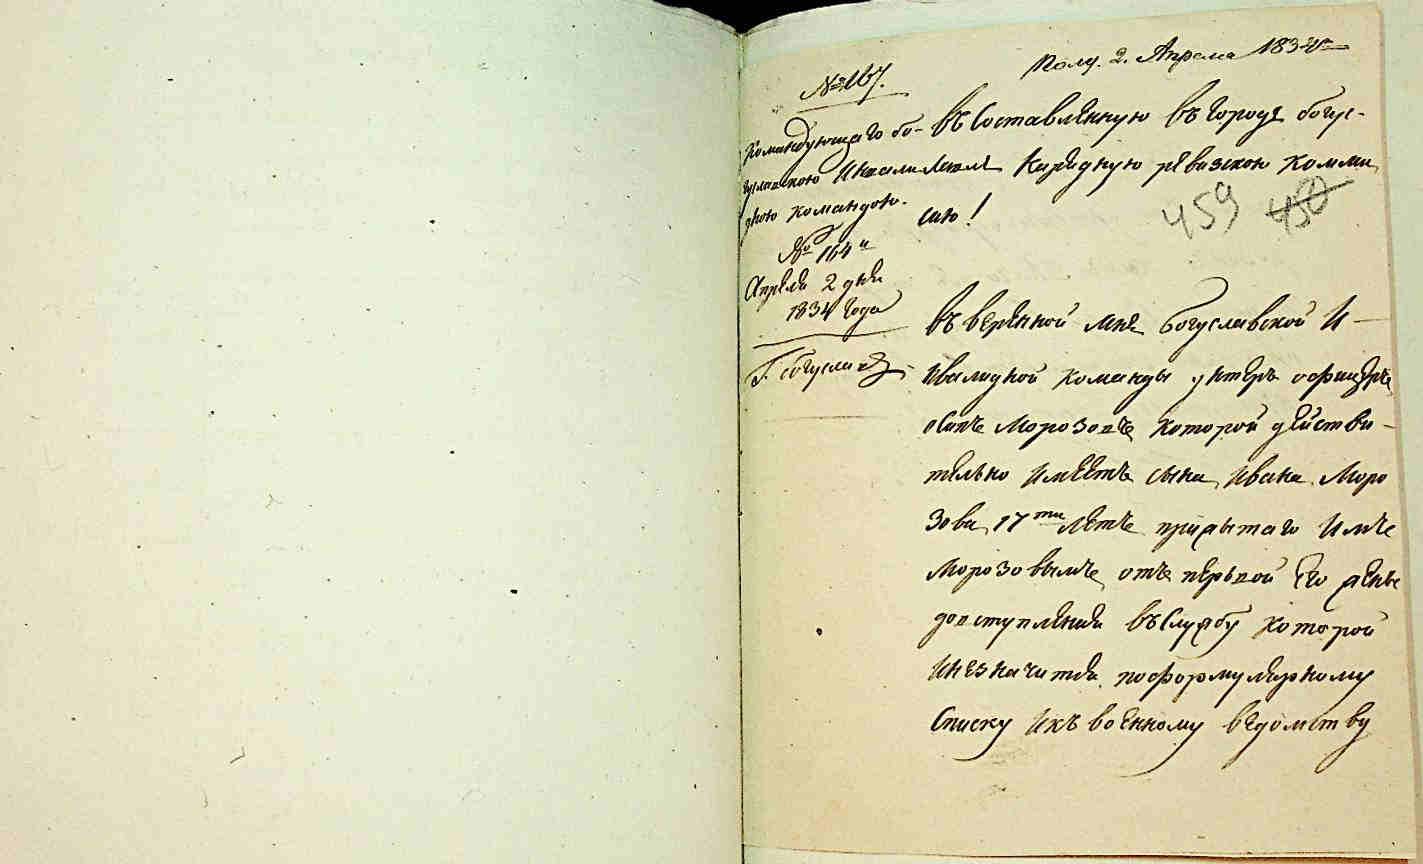 № 167.
Полу. 2. Апреля 1834го
Командующаго бо-
гуславскою Инвалид-
дною командою.
№ 164й
Апреля 2 дня
1834 года
Г. Богуслав
Въ Составленную въ городе богус-
лавле Еврейскую ревизскою комми
сию!
459 450
Въ веренной мне Богуславской И
нвалидной команды унтеръ офицеръ
Морозовъ которой действи-
тельно имеетъ сына Ивана Моро
зова 17ти летъ прижытаго имъ
Морозовымъ отъ первой его жены
довступления въ Службу которой
Инезначится поформулярному
Списку Икъ военному ведомству